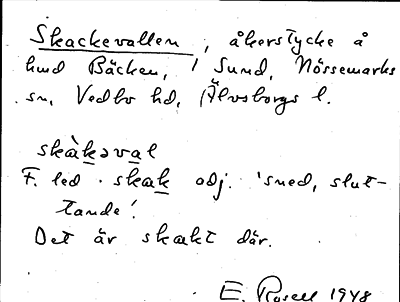 Skackevallen, åkerstycke å
hmd Bäcken, i Sund, Nössemarks
sn, Vedbo hd, Älvsborgs l.
skàkaval
F. led. skak adj. 'sned, slut-
tande'.
Det är skakt där.
E. Rosell 1948